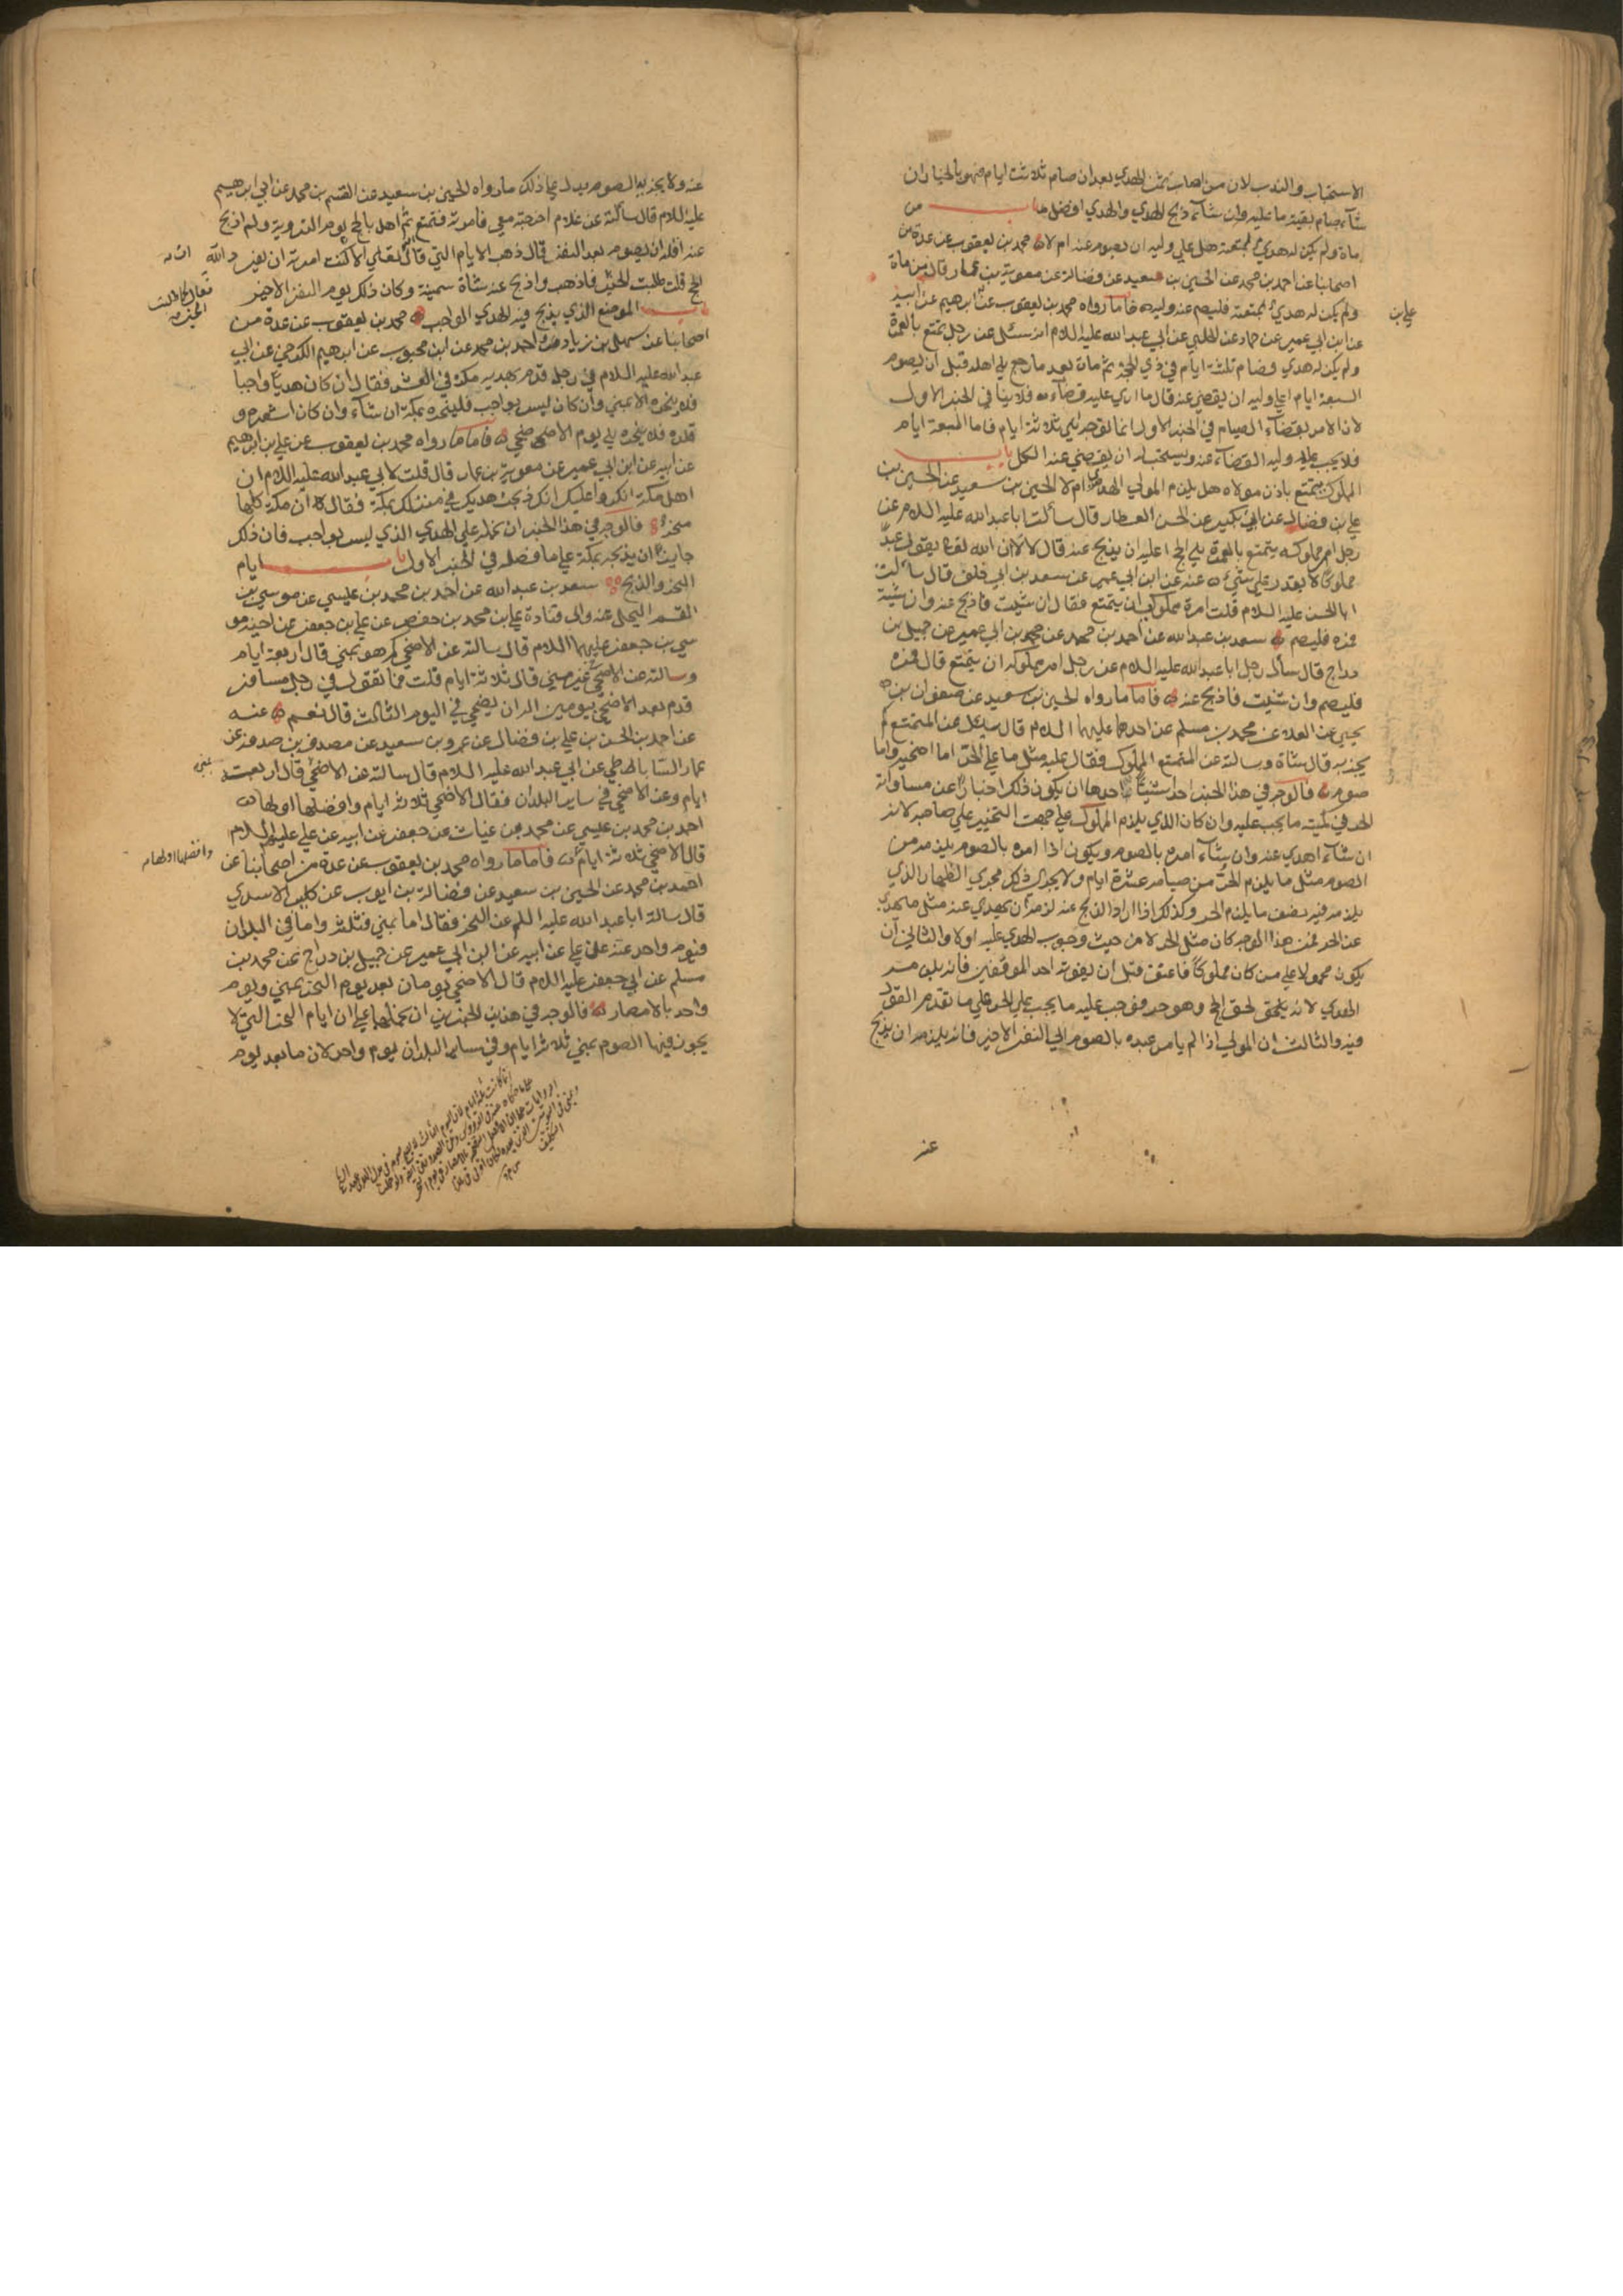 الاستحباب والندب لان من اصاب ثمن الهدي بعد ان صام ثلاثة ايام فهو بالخيار ان
شاء صام بقية ما عليه وان شاء ذبح الهدي والهدي افضل باب من
مات ولم يكن له هدي لمتعته هل علي وليه ان يصوم عنه ام لا محمد بن يعقوب عن عدة من
اصحابنا عن احمد بن محمد عن الحسين بن سعيد عن فضالة عن معوية بن عمار قال من مات
ولم يكن له هدي لمتعته فليصم عنه وليه فاما ما رواه محمد بن يعقوب عن ابرهيم عن ابيه
علي بن
عن ابن ابي عمير عن حماد عن الحلبي عن ابي عبد الله عليه السلام انه سئل عن رجل تمتع بالعمرة
ولم يكن له هدي فصام ثلثة ايام في ذي الحجة ثم مات بعد ما رجع الي اهله قبل ان يصوم
السبعة ايام اعلي وليه ان يقضي عنه قال ما اري عليه قضاء فلا ينافي الخبر الاول
لان الامر بقضاء الصيام في الخبر الاول انما توجه الي ثلاثة ايام فاما السبعة ايام
فلا يجب علي وليه القضاء عنه ويستحب له ان يقضي عنه الكل باب
المملوك يتمتع باذن مولاه هل يلزم المولي الهدي ام لا الحسين بن سعيد عن الحسن بن
علي بن فضال عن ابن بكير عن الحسن العطار قال سألت ابا عبد الله عليه السلام عن
رجل امر مملوكه يتمتع بالعمرة الي الحج اعليه ان يذبح عنه قال لا لان الله تعالي يقول عبدا
مملوكا لا يقدر علي شيء عنه عن ابن ابي عمير عن سعد بن ابي خلف قال سألت
ابا الحسن عليه السلام قلت امرت مملوكي ان يتمتع فقال ان شئت فاذبح عنه وان شئت
فمره فليصم سعد بن عبد الله عن احمد بن محمد عن محمد بن ابي عمير عن جميل بن
دراج قال سأل رجل ابا عبد الله عليه السلام عن رجل امر مملوكه ان يتمتع قال فمره
فليصم وان شئت فاذبح عنه فاما ما رواه الحسين بن سعيد عن صفوان بن
يحيي عن العلاء عن محمد بن مسلم عن احدهما عليهما السلام قال سئل عن المتمتع كم
يجزيه قال شاة وسالته عن المتمتع المملوك فقال عليه مثل ما علي الحر اما اضحية واما
صوم فالوجه في هذا الخبر احد شيئين احدها ان يكون ذلك اخبارا عن مساواته
الحر في كمية ما يجب عليه وان كان الذي يلزم المملوك علي جهت التخيير علي صاحبه لانه
ان شاء اهدي عنه وان شاء امره بالصوم ويكون اذا امره بالصوم يلزمه من
الصوم مثل ما يلزم الحر من صيام عشرة ايام ولا يجري ذلك مجري الظهار الذي
يلزمه فيه نصف ما يلزم الحر وكذلك اذا اراد الذبح عنه لزمه ان يهدي عنه مثل ما يهدي
عن الحر فمن هذا الوجه كان مثل الحر لا من حيث وجوب الهدي عليه اولا والثاني ان
يكون محمولا علي من كان مملوكا فاعتق قبل ان يفوته احد الموقفين فانه يلزمه
الهدي لانه يلحق الحج وهو حر فوجب عليه ما يجب علي الحر علي ما تقدم القول
فيه والثالث ان المولي اذا لم يامر عبده بالصوم الي النفر الاخير فانه يلزمه ان يذبح
عنه
عنه ولا يجزيه الصوم يدل علي ذلك ما رواه الحسين بن سعيد عن القسم بن محمد عن ابي ابرهيم
عليه السلام قال سألته عن غلام اخرجته معي فامرته فتمتع ثم اهل بالحج يوم التروية ولم اذبح
عنه افله ان يصوم بعد النفر قال ذهب الايام التي قال الله تعالي الا كنت امرته ان يفرد
الحج قلت طلبت الخير فاذهب واذبح عنه شاة سمينة وكان ذلك يوم النفر الاخير
باب الموضع الذي يذبح فيه الهدي الواجب محمد بن يعقوب عن عدة من
اصحابنا عن سهل بن زياد واحمد بن محمد عن ابن محبوب عن ابرهيم الكرخي عن ابي
عبد الله عليه السلام في رجل قدم بهديه مكة في العشر فقال ان كان هديا واجبا
فلا ينحره الا بمني وان كان ليس بواجب فلينحره بمكة ان شاء وان كان اشعره و
قلده فلا ينحره الي يوم الاضحي فاما ما رواه محمد بن يعقوب عن علي بن ابرهيم
عن ابيه عن ابن ابي عمير عن معوية بن عمار قال قلت لابي عبد الله عليه السلام ان
اهل مكة انكروا عليك انك ذبحت هديك في منزلك بمكة فقال ان مكة كلها
منحر فالوجه في هذا الخبر ان نحمله علي الهدي الذي ليس بواجب فان ذلك
جايز ان يذبحه بمكة علي ما فصله في الخبر الاول باب ايام
النحر والذبح سعد بن عبد الله عن احمد بن محمد بن عيسي عن موسي بن
القسم البجلي عنه وابي قتادة علي بن محمد بن حفص عن علي بن جعفر عن اخيه مو
سي بن جعفر عليهما السلام قال سالته عن الاضحي كم هو بمني قال اربعة ايام
وسالته عن الاضحي غير مني قال ثلاثة ايام قلت فما تقول في رجل مسافر
قدم بعد الاضحي بيومين اله ان يضحي في اليوم الثالث قال نعم عنه
عن احمد بن الحسن بن علي بن فضال عن عمرو بن سعيد عن مصدق بن صدقة عن
عمار الساباطي عن ابي عبد الله عليه السلام قال سالته عن الاضحي قال اربعة
ايام وعن الاضحي في ساير البلدان فقال الاضحي ثلاثة ايام وافضلها اولها
احمد بن محمد بن عيسي عن محمد بن غياث عن جعفر عن ابيه عن علي عليه السلام
وافضلها اولها
قال الاضحي ثلاثة ايام فاما ما رواه محمد بن يعقوب عن عدة من اصحابنا عن
احمد بن محمد عن الحسين بن سعيد عن فضالة بن ايوب عن كليب الاسدي
قال سالت ابا عبد الله عليه السلم عن النحر فقال اما بمني فثلثة واما في البلدان
فيوم واحد عنه عن علي عن ابيه عن ابن ابي عمير عن جميل بن دراج عن محمد بن
مسلم عن ابي جعفر عليه السلام قال الاضحي يومان بعد يوم النحر بمني ويوم
واحد بالامصار فالوجه في هذين الخبرين ان نحملهما علي ان ايام النحر التي لا
يجوز فيها الصوم بمني ثلاثة ايام وفي سائر البلدان يوم واحد لان ما بعد يوم